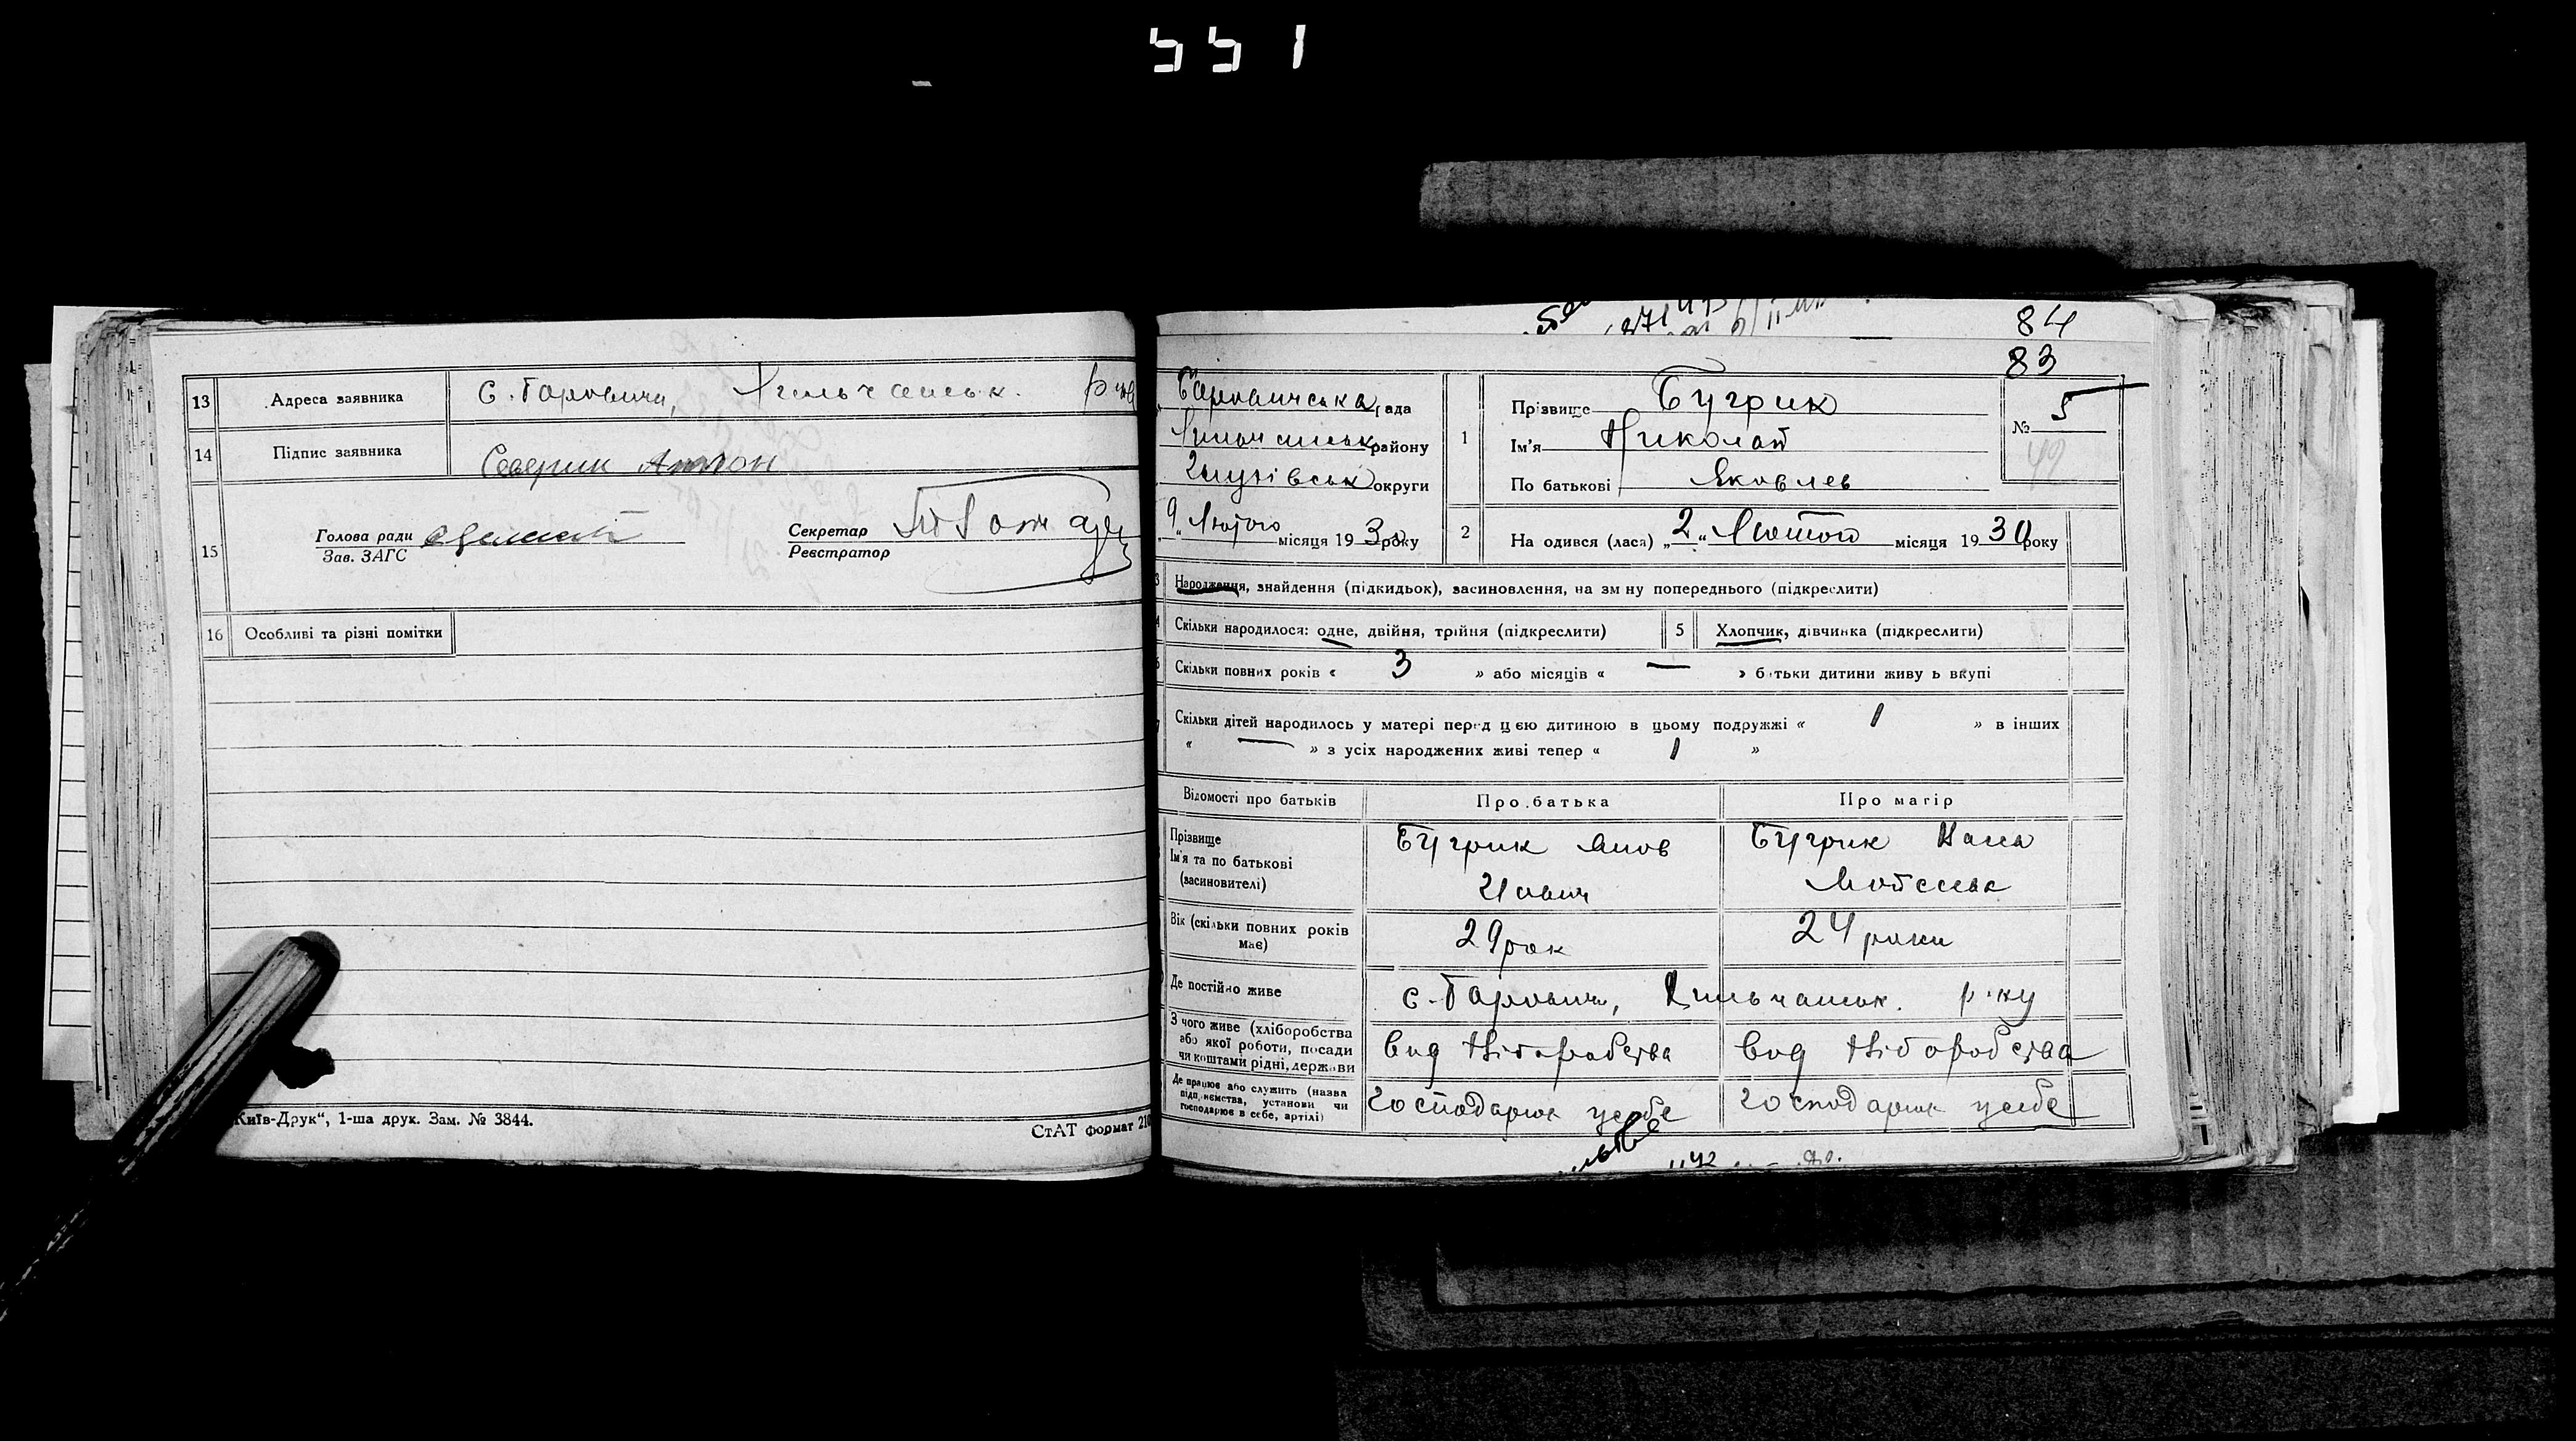 551
13 Адреса заявника с. Баровичи,
14 Підпис заявника Северин Антон
15 Голова ради
Зав. ЗАГС
Секретар
Реєстратор
16 Особливі та різні помітки
Київ-Друк“, 1-ша друк. Зам. № 3844.
СтАТ формат 210
84
83
рада
району
Глухівськ округи
„9„ Лютого місяця 1930 року
1 Прізвище Бугрик
Ім'я Николай
По батькові Яковлев
№ 5
49
2 На одився (лася) „2„ Лютого місяця 1930 року
3 Народження, знайдення (підкидьок), засиновлення, на зм ну попереднього (підкреслити)
4 Скільки народилося: одне, двійня, трійня (підкреслити) 5 Хлопчик, дівчинка (підкреслити)
6 Скільки повних років « 3 » або місяців « — » б тьки дитини живу ь вкупі
7 Скільки дітей народилось у матері перед цією дитиною в цьому подружжі « 1 » в інших
« — » з усіх народжених живі тепер « 1 »
Відомості про батьків Про батька Про матір
Прізвище
Ім'я та по батькові
(засиновителі)
Бугрик Яков
Бугрик
Вік (скільки повних років
має)
29 рок
24 роки
Де постійно живе
р-ку
З чого живе (хліборобства
або якої роботи, посади
чи коштами рідні, держави
вид хліборобства
вид хліборобства
Де працює або служить (назва
підп иємства, установи чи
господарює в себе, артілі)
господарює усебе
господарює усебе